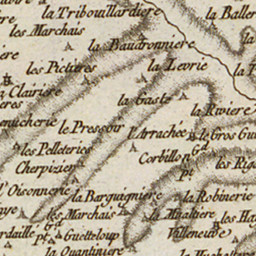 la Tribouillardiere
la Baller
les Marchais
la Baudronniere
les Pictieres
la Levrie
la Clairiere
la Gaste
la Riviere
le Pressoir
l'Arrachée
le Gros Gui
les Pelleteries
Cherpiziere
Corbillon gd
pt
les Rig
l'Oisonnerie
la Barguigniere
la Robinerie
les Marchais
la Mialtiere
les Ha
gd
pt
Guetteloup
Villeneuve
la Quantiniere